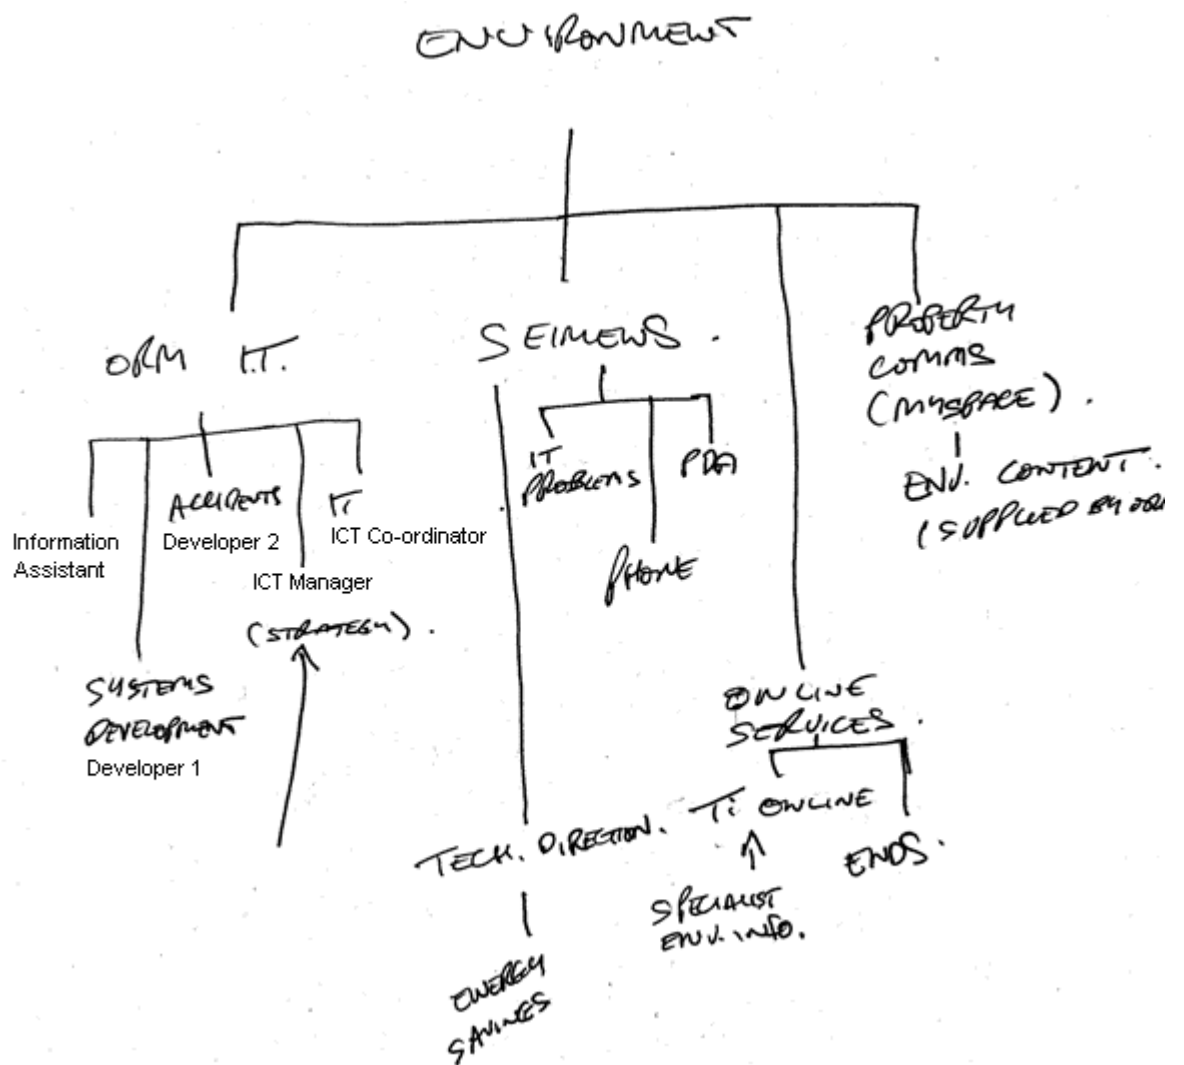 ENVIRONMENT
ORM I.T.
SEIMENS.
PROPERTY
COMMS
(MYSPACE).
ENV. CONTENT.
(SUPPLIED BY ORM
IT
PROBLEMS
PDA
PHONE
ACCIDENTS
IT
Information
Assistant
Developer 2
ICT Co-ordinator
ICT Manager
(STRATEGY).
SYSTEMS
DEVELOPMENT
Developer 1
ONLINE
SERVICES.
TECH. DIRECTION.
Ti ONLINE
ENDS.
SPECIALIST
ENV. INFO.
ENERGY
SAVINGS